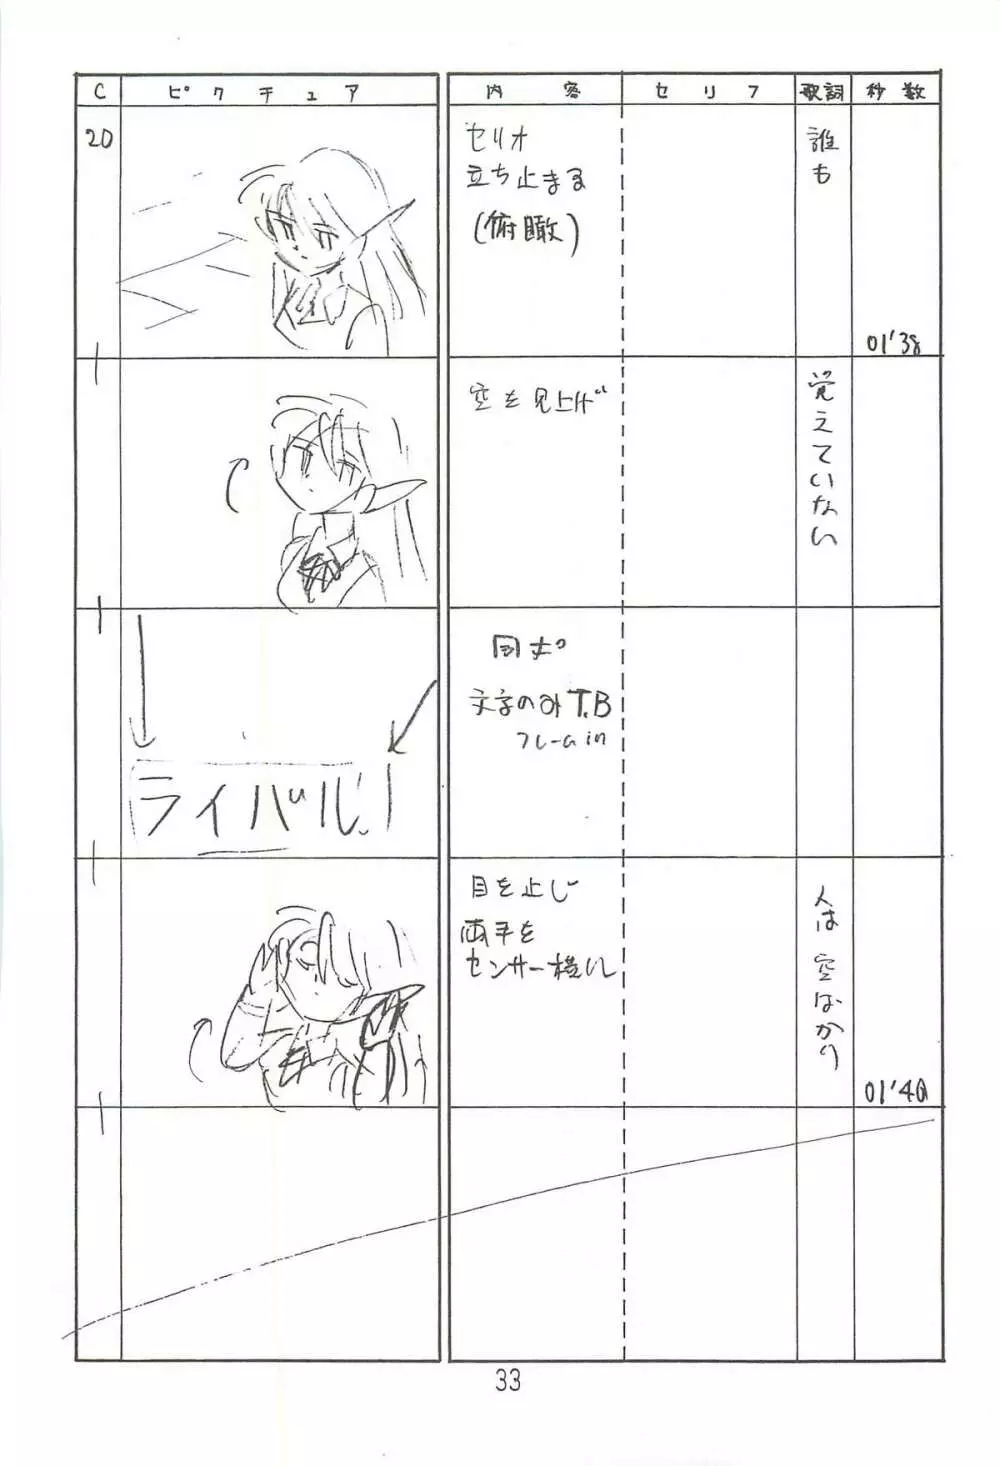 C ピクチュア 内容 セリフ 歌詞 秒数
20
セリオ
立ち止まる
(俯瞰)
誰も
01'38
空を見上げ
覚えていない
同ポ
文字のみT.B
フレームin
ライバル!
目を止じ
両手を
センサー横に
人は空ばかり
01'40
33